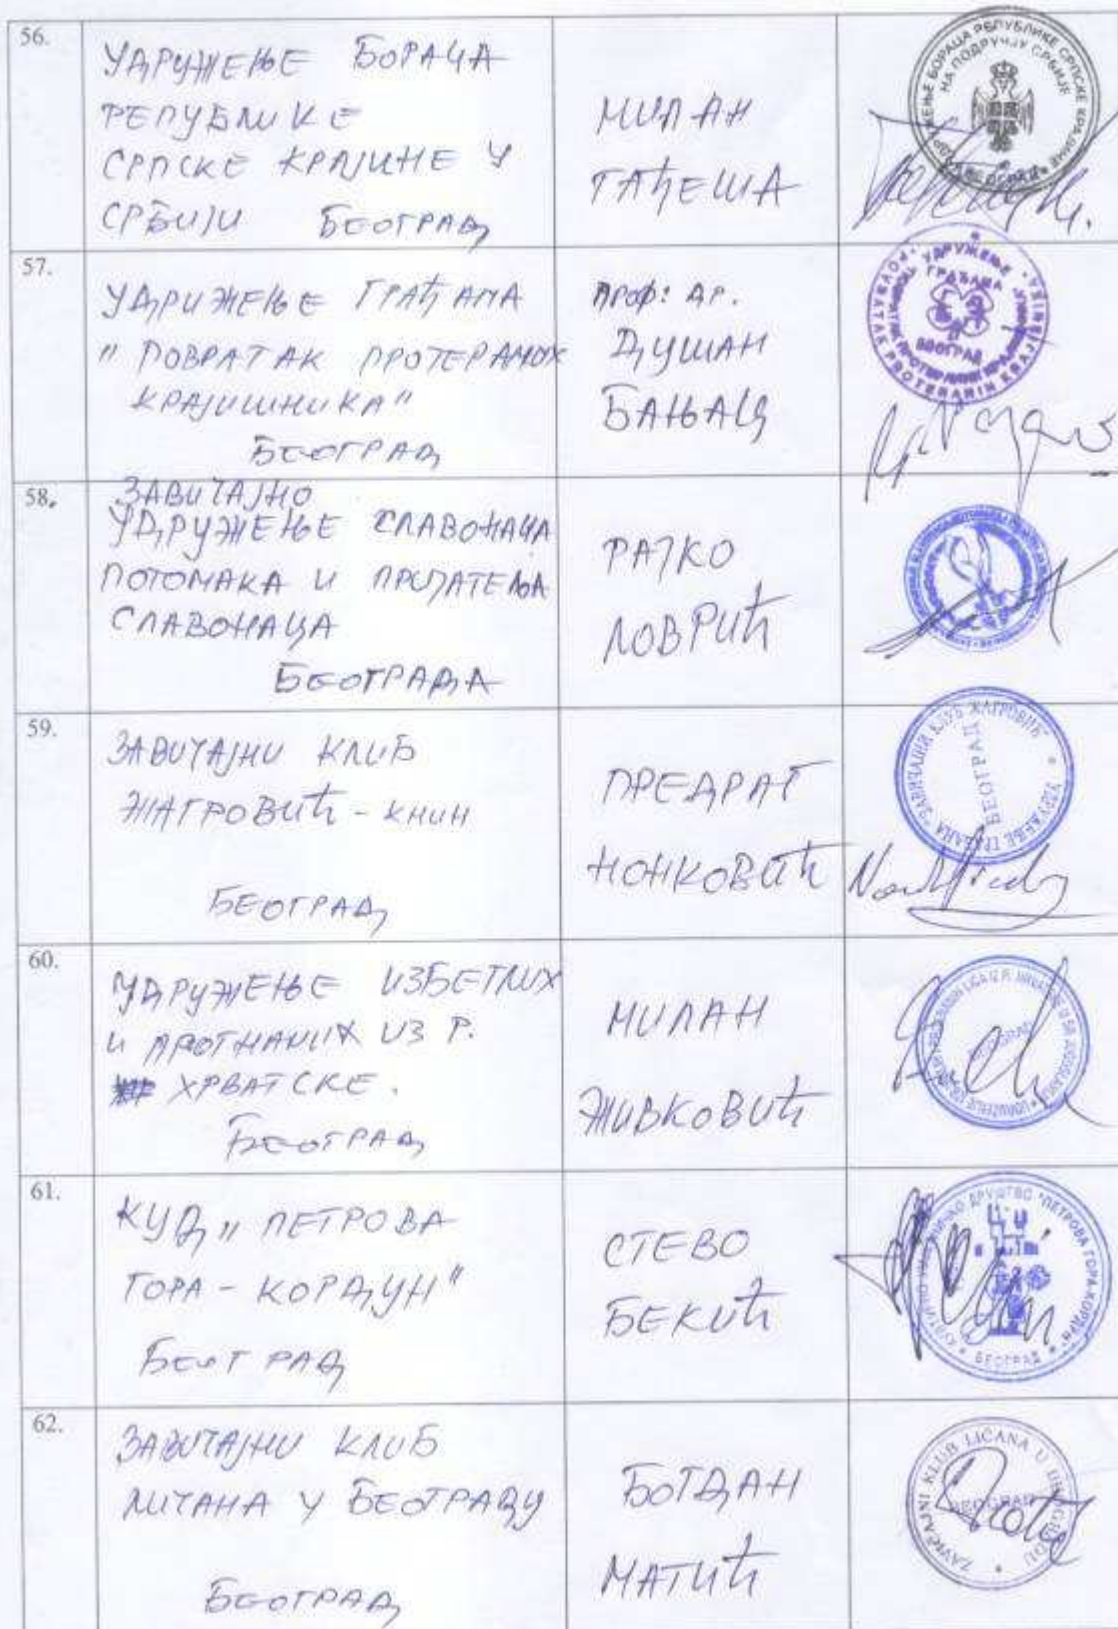 56.
УДРУЖЕЊЕ БОРАЦА
РЕПУБЛИКЕ
СРПСКЕ КРАЈИНЕ У
СРБИЈИ БЕОГРАД
МИЛАН
ГАЂЕША
РЕПУБЛИКЕ СРПСКЕ
НА ПОДРУЧЈУ СРБИЈЕ
57.
УДРИЖЕЊЕ ГРАЂАНА
"ПОВРАТАК ПРОТЕРАНИХ
КРАЈИШНИКА"
БЕОГРАД
ПРОФ: ДР.
ДУШАН
БАЊАЦ
УДРУЖЕЊЕ
ГРАЂАНА
БЕОГРАД
POVRATAK PROTERANIH KRAJIŠNIKA
58.
ЗАВИЧАЈНО
УДРУЖЕЊЕ СЛАВОНАЦА
ПОТОМАКА И ПРИЈАТЕЉА
СЛАВОНАЦА
БЕОГРАДА
РАЈКО
ЛОВРИЋ
59.
ЗАВИЧАЈНИ КЛИБ
ЖАГРОВИЋ - КНИН
БЕОГРАД
ПРЕДРАГ
НОНКОВИЋ
УДРУЖЕЊЕ ГРАЂАНА "ЗАВИЧАЈНИ КЛУБ ЖАГРОВИЋ"
БЕОГРАД
60.
УДРУЖЕЊЕ ИЗБЕГЛИХ
И ПРОГНАНИХ ИЗ Р.
ХРВАТСКЕ.
БЕОГРАД
МИЛАН
ЖИВКОВИЋ
BEOGRAD
61.
КУД "ПЕТРОВА
ГОРА - КОРДУН"
БЕОГРАД
СТЕВО
БЕКИЋ
ДРУШТВО "ПЕТРОВА ГОРА-КОРДУН"
БЕОГРАД
62.
ЗАВИЧАЈНИ КЛИБ
ЛИЧАНА У БЕОГРАДУ
БЕОГРАД
БОГДАН
МАТИЋ
ZAVIČAJNI KLUB LIČANA U BEOGRADU
BEOGRAD